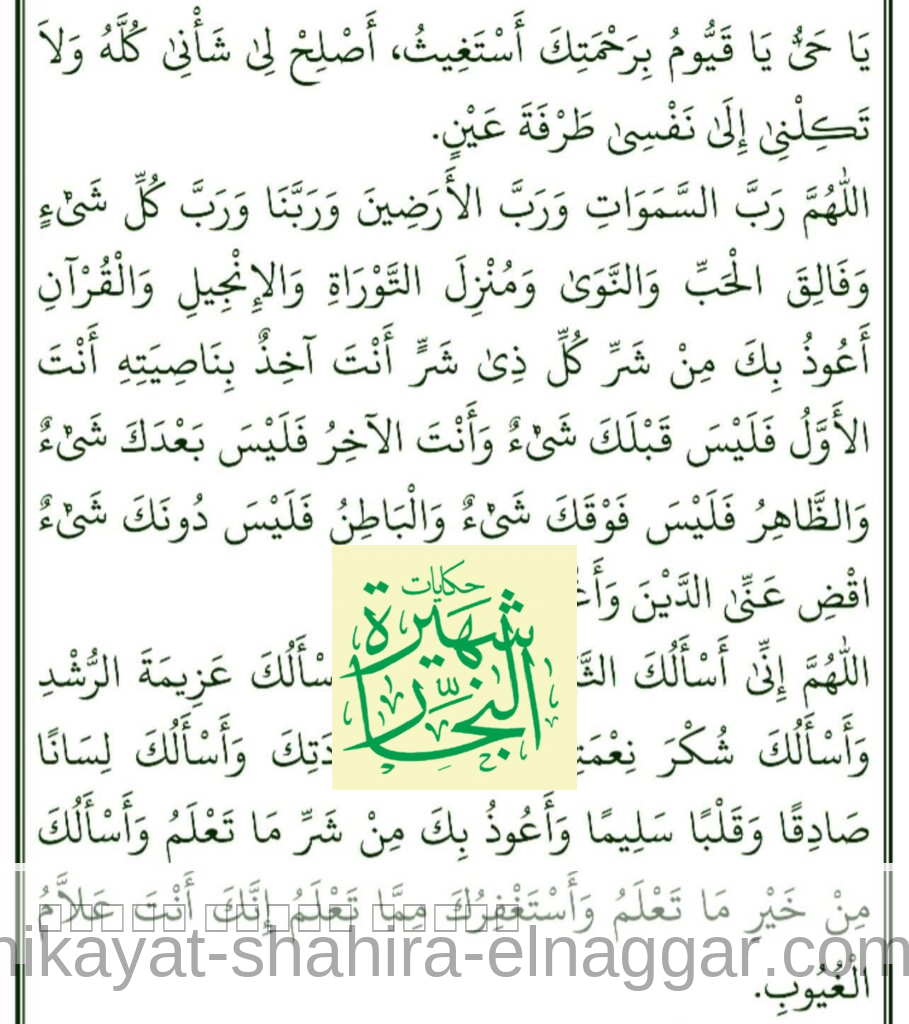 يَا حَىُّ يَا قَيُّومُ بِرَحْمَتِكَ أَسْتَغِيثُ، أَصْلِحْ لِى شَأْنِى كُلَّهُ وَلاَ
تَكِلْنِى إِلَى نَفْسِى طَرْفَةَ عَيْنٍ.
اللّٰهُمَّ رَبَّ السَّمَوَاتِ وَرَبَّ الأَرَضِينَ وَرَبَّنَا وَرَبَّ كُلِّ شَىْءٍ
وَفَالِقَ الْحَبِّ وَالنَّوَى وَمُنْزِلَ التَّوْرَاةِ وَالإِنْجِيلِ وَالْقُرْآنِ
أَعُوذُ بِكَ مِنْ شَرِّ كُلِّ ذِى شَرٍّ أَنْتَ آخِذٌ بِنَاصِيَتِهِ أَنْتَ
الأَوَّلُ فَلَيْسَ قَبْلَكَ شَىْءٌ وَأَنْتَ الآخِرُ فَلَيْسَ بَعْدَكَ شَىْءٌ
وَالظَّاهِرُ فَلَيْسَ فَوْقَكَ شَىْءٌ وَالْبَاطِنُ فَلَيْسَ دُونَكَ شَىْءٌ
اقْضِ عَنِّى الدَّيْنَ
حكايات
شهيرة
النجار
اللّٰهُمَّ إِنِّى أَسْأَلُكَ عَزِيمَةَ الرُّشْدِ
وَأَسْأَلُكَ شُكْرَ وَأَسْأَلُكَ لِسَانًا
صَادِقًا وَقَلْبًا سَلِيمًا وَأَعُوذُ بِكَ مِنْ شَرِّ مَا تَعْلَمُ وَأَسْأَلُكَ
مِنْ خَيْرِ مَا تَعْلَمُ وَأَسْتَغْفِرُكَ مِمَّا تَعْلَمُ إِنَّكَ أَنْتَ عَلاَّمُ
hikayat-shahira-elnaggar.com
الْغُيُوبِ.